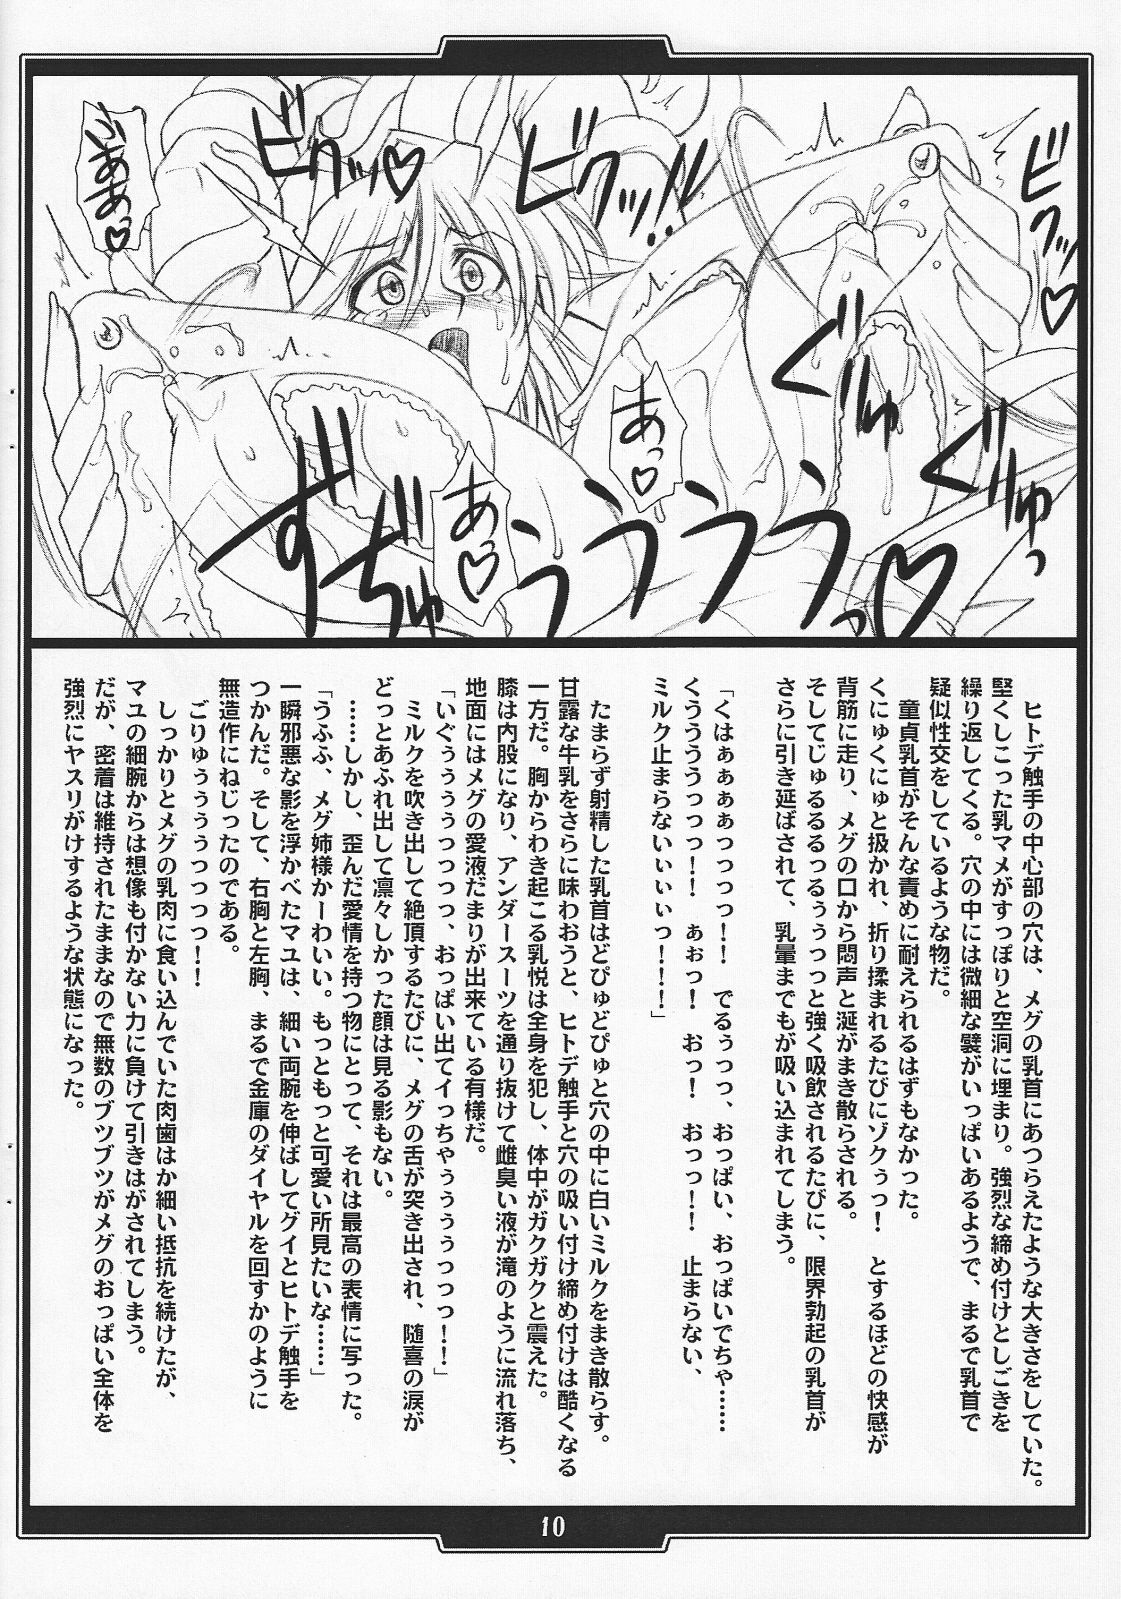 ごああぁっ♡
ビクッ♡
ビクッ!!
ビクッ♡
ぐりゅ
ぐりゅっ
あっ♡
あっ♡
ずぢゅうううううっ♡
ヒトデ触手の中心部の穴は、メグの乳首にあつらえたような大きさをしていた。
堅くしこった乳マメがすっぽりと空洞に埋まり。強烈な締め付けとしごきを
繰り返してくる。穴の中には微細な襞がいっぱいあるようで、まるで乳首で
疑似性交をしているような物だ。
童貞乳首がそんな責めに耐えられるはずもなかった。
くにゅくにゅと扱かれ、折り揉まれるたびにゾクぅっ！　とするほどの快感が
背筋に走り、メグの口から悶声と涎がまき散らされる。
そしてじゅるるるっるぅぅっっと強く吸飲されるたびに、限界勃起の乳首が
さらに引き延ばされて、乳暈までもが吸い込まれてしまう。
「くはぁぁぁぁっっっっ！！　でるぅっっ、おっぱい、おっぱいでちゃ……
くううううっっっ！！　ぁぉっ！　おっ！　おっっ！！　止まらない、
ミルク止まらないぃぃぃぃっ！！！」
たまらず射精した乳首はどぴゅどぴゅと穴の中に白いミルクをまき散らす。
甘露な牛乳をさらに味わおうと、ヒトデ触手と穴の吸い付け締め付けは酷くなる
一方だ。胸からわき起こる乳悦は全身を犯し、体中がガクガクと震えた。
膝は内股になり、アンダースーツを通り抜けて雌臭い液が滝のように流れ落ち、
地面にはメグの愛液だまりが出来ている有様だ。
「いぐぅぅぅぅっっっっ、おっぱい出てイっちゃぅぅぅぅっっっ！！」
ミルクを吹き出して絶頂するたびに、メグの舌が突き出され、随喜の涙が
どっとあふれ出して凛々しかった顔は見る影もない。
……しかし、歪んだ愛情を持つ物にとって、それは最高の表情に写った。
「うふふ、メグ姉様かーわいい。もっともっと可愛い所見たいな……」
一瞬邪悪な影を浮かべたマユは、細い両腕を伸ばしてグイとヒトデ触手を
つかんだ。そして、右胸と左胸、まるで金庫のダイヤルを回すかのように
無造作にねじったのである。
ごりゅぅぅぅぅっっっっ！！
しっかりとメグの乳肉に食い込んでいた肉歯はか細い抵抗を続けたが、
マユの細腕からは想像も付かない力に負けて引きはがされてしまう。
だが、密着は維持されたままなので無数のブツブツがメグのおっぱい全体を
強烈にヤスリがけするような状態になった。
10